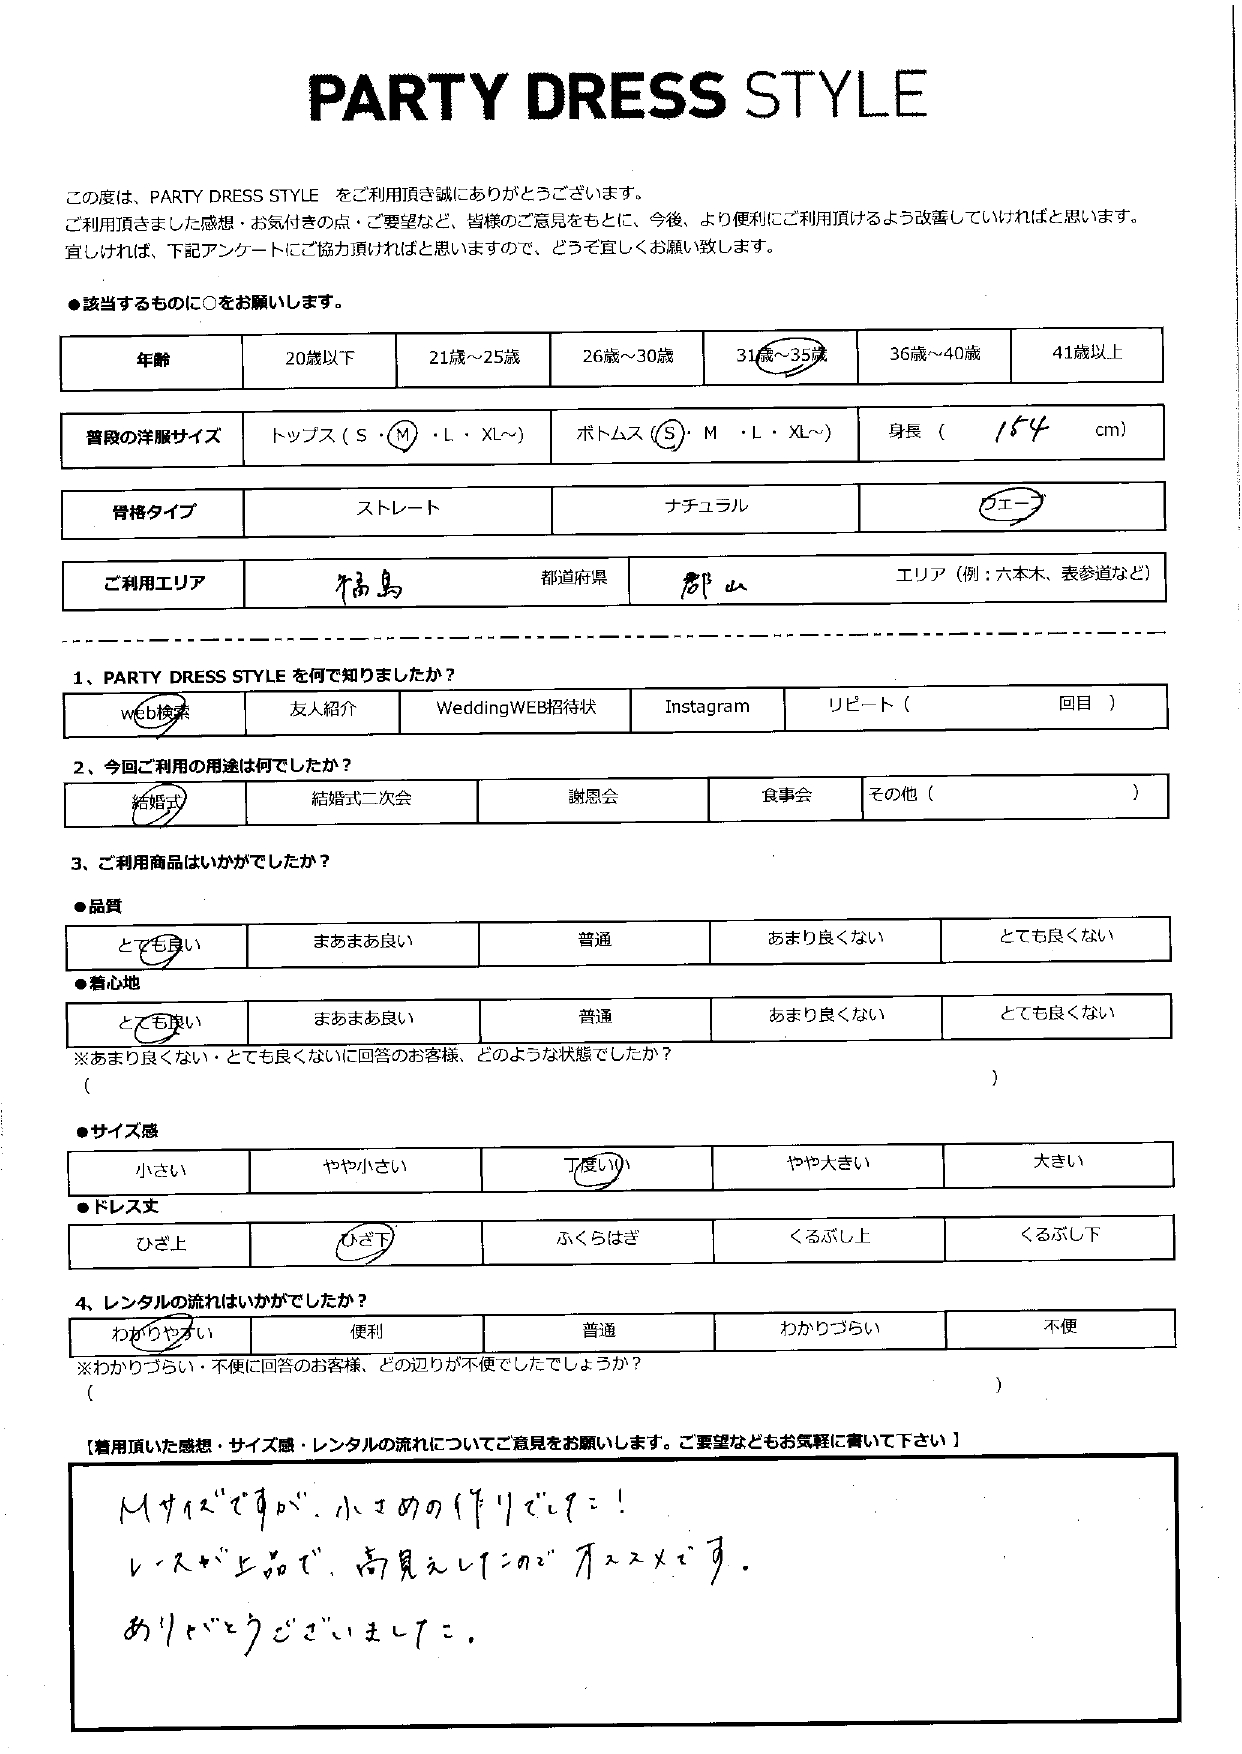 PARTY DRESS STYLE
この度は、PARTY DRESS STYLE をご利用頂き誠にありがとうございます。
ご利用頂きました感想・お気付きの点・ご要望など、皆様のご意見をもとに、今後、より便利にご利用頂けるよう改善していければと思います。
宜しければ、下記アンケートにご協力頂ければと思いますので、どうぞ宜しくお願い致します。
●該当するものに○をお願いします。
年齢 20歳以下 21歳～25歳 26歳～30歳 31歳～35歳 36歳～40歳 41歳以上
普段の洋服サイズ トップス ( S ・ M ・L ・ XL～) ボトムス ( S ・ M ・L ・ XL～) 身長 ( 154 cm)
骨格タイプ ストレート ナチュラル ウェーブ
ご利用エリア 福島 都道府県 郡山 エリア（例：六本木、表参道など）
1、PARTY DRESS STYLE を何で知りましたか？
web検索 友人紹介 WeddingWEB招待状 Instagram リピート（ 回目 ）
2、今回ご利用の用途は何でしたか？
結婚式 結婚式二次会 謝恩会 食事会 その他（ ）
3、ご利用商品はいかがでしたか？
●品質
とても良い まあまあ良い 普通 あまり良くない とても良くない
●着心地
とても良い まあまあ良い 普通 あまり良くない とても良くない
※あまり良くない・とても良くないに回答のお客様、どのような状態でしたか？
（ ）
●サイズ感
小さい やや小さい 丁度いい やや大きい 大きい
●ドレス丈
ひざ上 ひざ下 ふくらはぎ くるぶし上 くるぶし下
4、レンタルの流れはいかがでしたか？
わかりやすい 便利 普通 わかりづらい 不便
※わかりづらい・不便に回答のお客様、どの辺りが不便でしたでしょうか？
（ ）
【着用頂いた感想・サイズ感・レンタルの流れについてご意見をお願いします。ご要望などもお気軽に書いて下さい】
Mサイズですが、小さめの作りでした！
レースが上品で、高見えしたのでオススメです。
ありがとうございました。